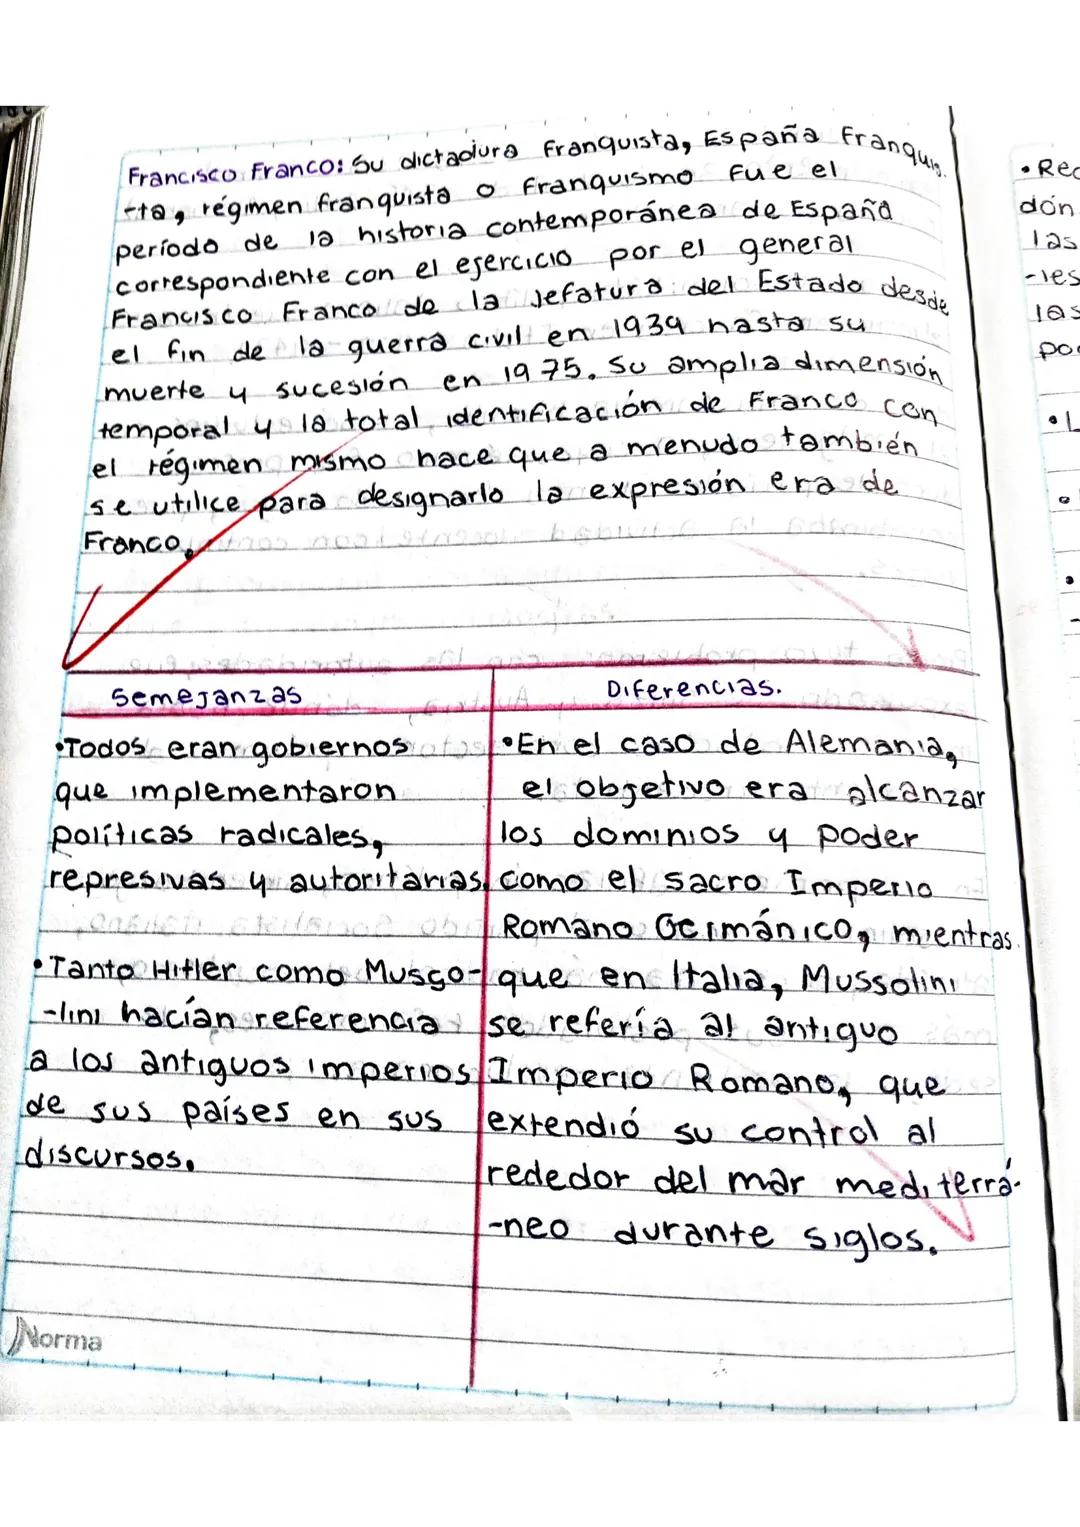 Francisco Franco: Su dictadura franquista, España franquis.
-ta, régimen franquista o franquismo fue el
período de la historia contemporánea de España
correspondiente con el ejercicio por el general
Francisco Franco de la Jefatura del Estado desde
el fin de la guerra civil en 1939 hasta su
muerte y sucesión en 1975. Su amplia dimensión
temporal y la total identificación de Franco con
el régimen mismo hace que a menudo también
se utilice para designarlo la expresión era de
Franco.
Semejanzas
•Todos eran gobiernos
que implementaron
políticas radicales,
represivas y autoritarias.
•Tanto Hitler como Musso-
-lini hacían referencia
a los antiguos imperios
de sus países en sus
discursos.
Diferencias.
•En el caso de Alemania,
el objetivo era alcanzar
los dominios y poder
como el sacro Imperio
Romano Germánico, mientras
que en Italia, Mussolini
se refería al antiguo
Imperio Romano, que
extendió su control al
rededor del mar mediterrá-
-neo durante siglos.
Norma
• Rec
dón
las
-les
las
po
• L